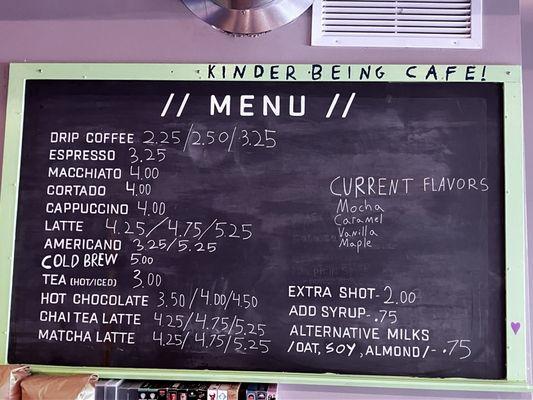 KINDER·BEING CAFE!
// MENU //
DRIP COFFEE 2.25/2.50/3.25
ESPRESSO 3.25
MACCHIATO 4.00
CORTADO 4.00
CAPPUCCINO 4.00
LATTE 4.25/4.75/5.25
AMERICANO 3.25/5.25
COLD BREW 5.00
TEA (HOT/ICED) 3.00
HOT CHOCOLATE 3.50/4.00/4.50
CHAI TEA LATTE 4.25/4.75/5.25
MATCHA LATTE 4.25/4.75/5.25
CURRENT FLAVORS
Mocha
Caramel
Vanilla
Maple
EXTRA SHOT- 2.00
ADD SYRUP- .75
ALTERNATIVE MILKS
/OAT, SOY, ALMOND/- .75